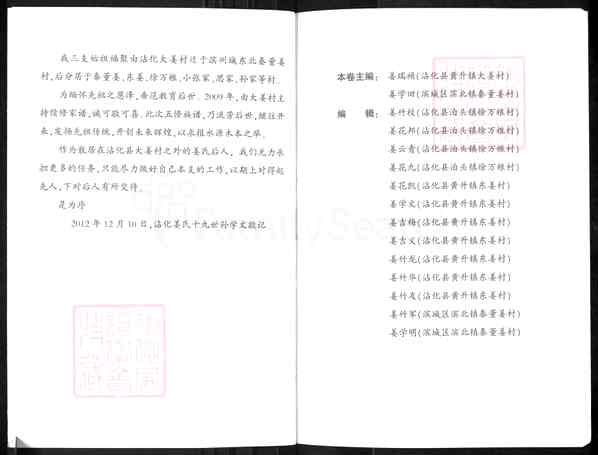 我三支始祖福聚由沾化大姜村迁于滨州城东北秦董姜
村,后分居于秦董姜、东姜、徐万粮、小张家、居家、孙家等村。
为缅怀先祖之恩泽,垂范教育后世。2009年,由大姜村主
持续修家谱,诚可敬可喜。此次五修族谱,乃流芳后世,继往开
来,发扬先祖传统,开创未来辉煌,以永报水源木本之厚。
作为散居在沾化县大姜村之外的姜氏后人, 我们无力承
担更多的任务,只能尽力做好自己本支的工作,以期上对得起
先人,下对后人有所交待。
是为序
2012年12月10日,沾化姜氏十九世孙学文敬记
本卷主编: 姜瑞祯(沾化县黄升镇大姜村)
姜学田(滨城区滨北镇秦董姜村)
编 辑: 姜竹枝(沾化县泊头镇徐万粮村)
姜花邦(沾化县泊头镇徐万粮村)
姜云青(沾化县泊头镇徐万粮村)
姜花九(沾化县泊头镇徐万粮村)
姜花凯(沾化县黄升镇东姜村)
姜学文(沾化县黄升镇东姜村)
姜吉梅(沾化县黄升镇东姜村)
姜吉义(沾化县黄升镇东姜村)
姜竹龙(沾化县黄升镇东姜村)
姜竹华(沾化县黄升镇东姜村)
姜竹友(沾化县黄升镇东姜村)
姜竹军(滨城区滨北镇秦董姜村)
姜学明(滨城区滨北镇秦董姜村)
FamilySea